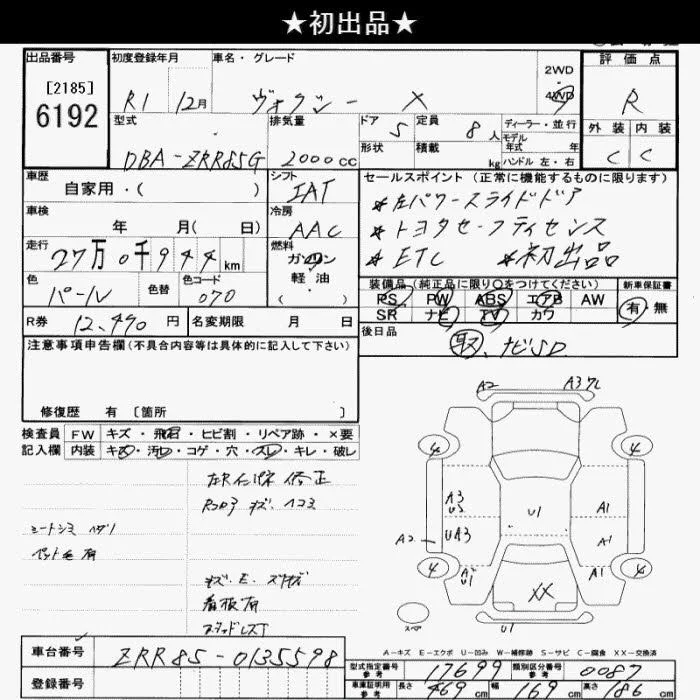 ★初出品★
出品番号
[2185]
6192
初度登録年月
R1 12月
車名・グレード
ヴォクシー X
2WD
4WD
評価点
R
外装 内装
C C
型式
DBA-ZRR85G
排気量
2000cc
ドア 5
形状
定員 8人
積載 kg
ディーラー・並行
モデル年式 年
ハンドル 左・右
車歴
自家用・( )
シフト
IAT
セールスポイント (正常に機能するものに限ります)
*左パワースライドドア
*トヨタセーフティセンス
*ETC *初出品
車検
年 月( 日)
冷房
AAC
走行
27万0千944km
燃料
ガソリン
軽油
( )
色
パール
色替
色コード
070
装備品(純正品に限り○をつけてください)
PS PW ABS エアB AW
SR ナビ TV カワ
新車保証書
有・無
R券 12,490円
名変期限 月 日
後日品
取、ナビSD
注意事項申告欄(不具合内容等は具体的に記入して下さい)
修復歴 有 [箇所 ]
検査員記入欄
FW キズ・飛石・ヒビ割・リペア跡・×要
内装 キズ・汚レ・コゲ・穴・スレ・キレ・破レ
修正
キズ ヘコミ
シートシミ ハガレ
ペット毛有
看板有
A2 A3
4 4
A3
U2
U1
A1
A2 UA3
A1
4 4
U1
A1
XX
スペア
U1
A-キズ E-エクボ U-凹み W-補修跡 S-サビ C-腐食 XX-交換済
車台番号 ZRR85-0135598
登録番号
型式指定番号 参考 17699
類別区分番号 参考 0087
車庫証明用 参考 長さ 469cm 幅 169cm 高さ 186cm